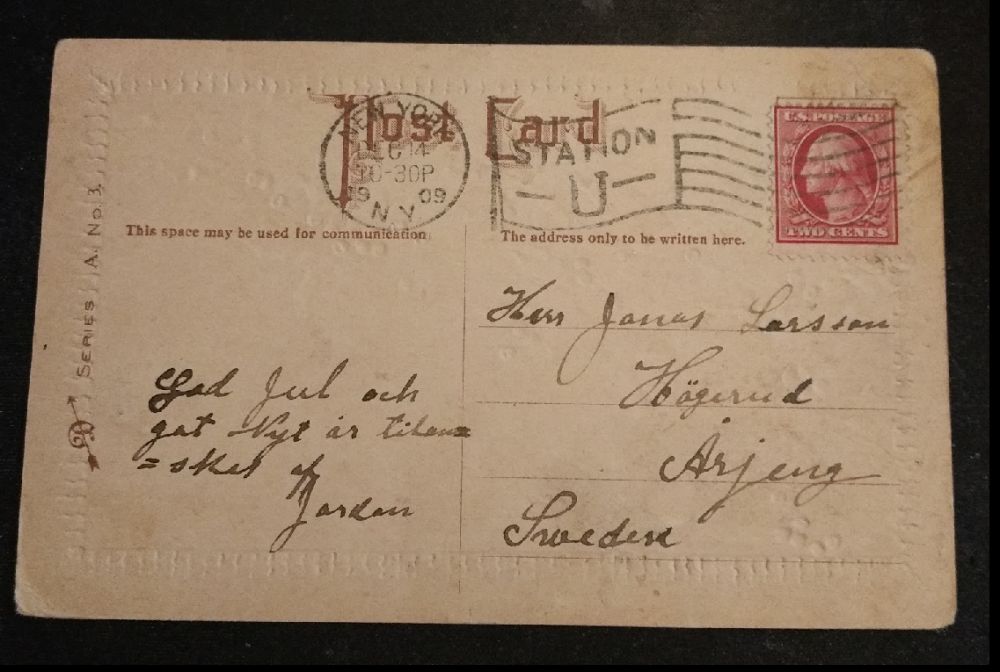 Post Card
NEW YORK
DEC 14
10-30P
1909
N.Y.
STATION
U
U.S. POSTAGE
TWO CENTS
This space may be used for communication
The address only to be written here.
SERIES A. No. 3.
God Jul och
got Nyt år tilön=
=skes af
Jordan
Herr Jonas Larsson
Högerud
Årjeng
Sweden